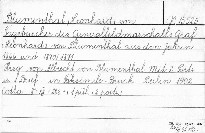 Blumenthal, Leonhard von
Tagebücher des Generalfeldmarschalls Graf
Leonhard von Blumenthal aus den Jahren
1866 und 1870/1871
Hrsg. von Albrecht von Blumenthal Mit 2 Port.
u. 1 Brief in Faksimile-Druck Berlin 1902
Cotta 8°